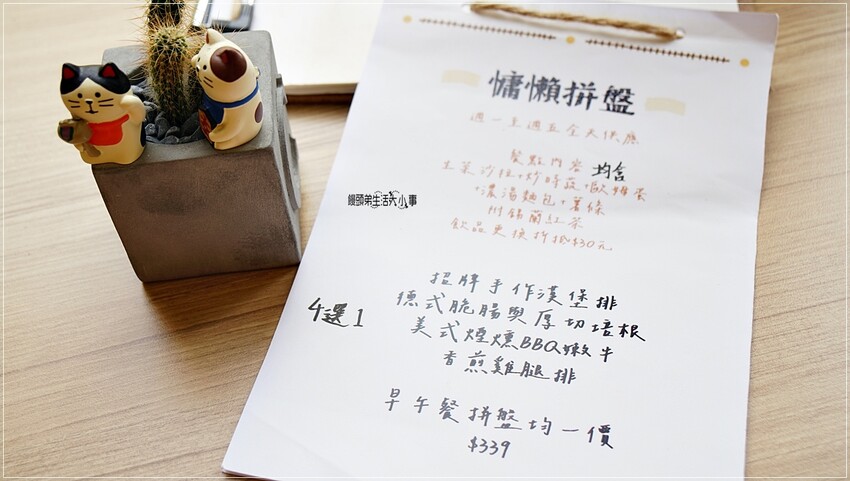 慵懶拼盤
週一至週五全天供應
餐點內容 均含
生菜沙拉+炒時蔬+歐姆蛋
+濃湯麵包+薯條
附錫蘭紅茶
飲品更換折抵$30元
饅頭弟生活大小事
4選1
招牌手作漢堡排
德式脆腸與厚切培根
美式煙燻BBQ嫩牛
香煎雞腿排
早午餐拼盤均一價
$339